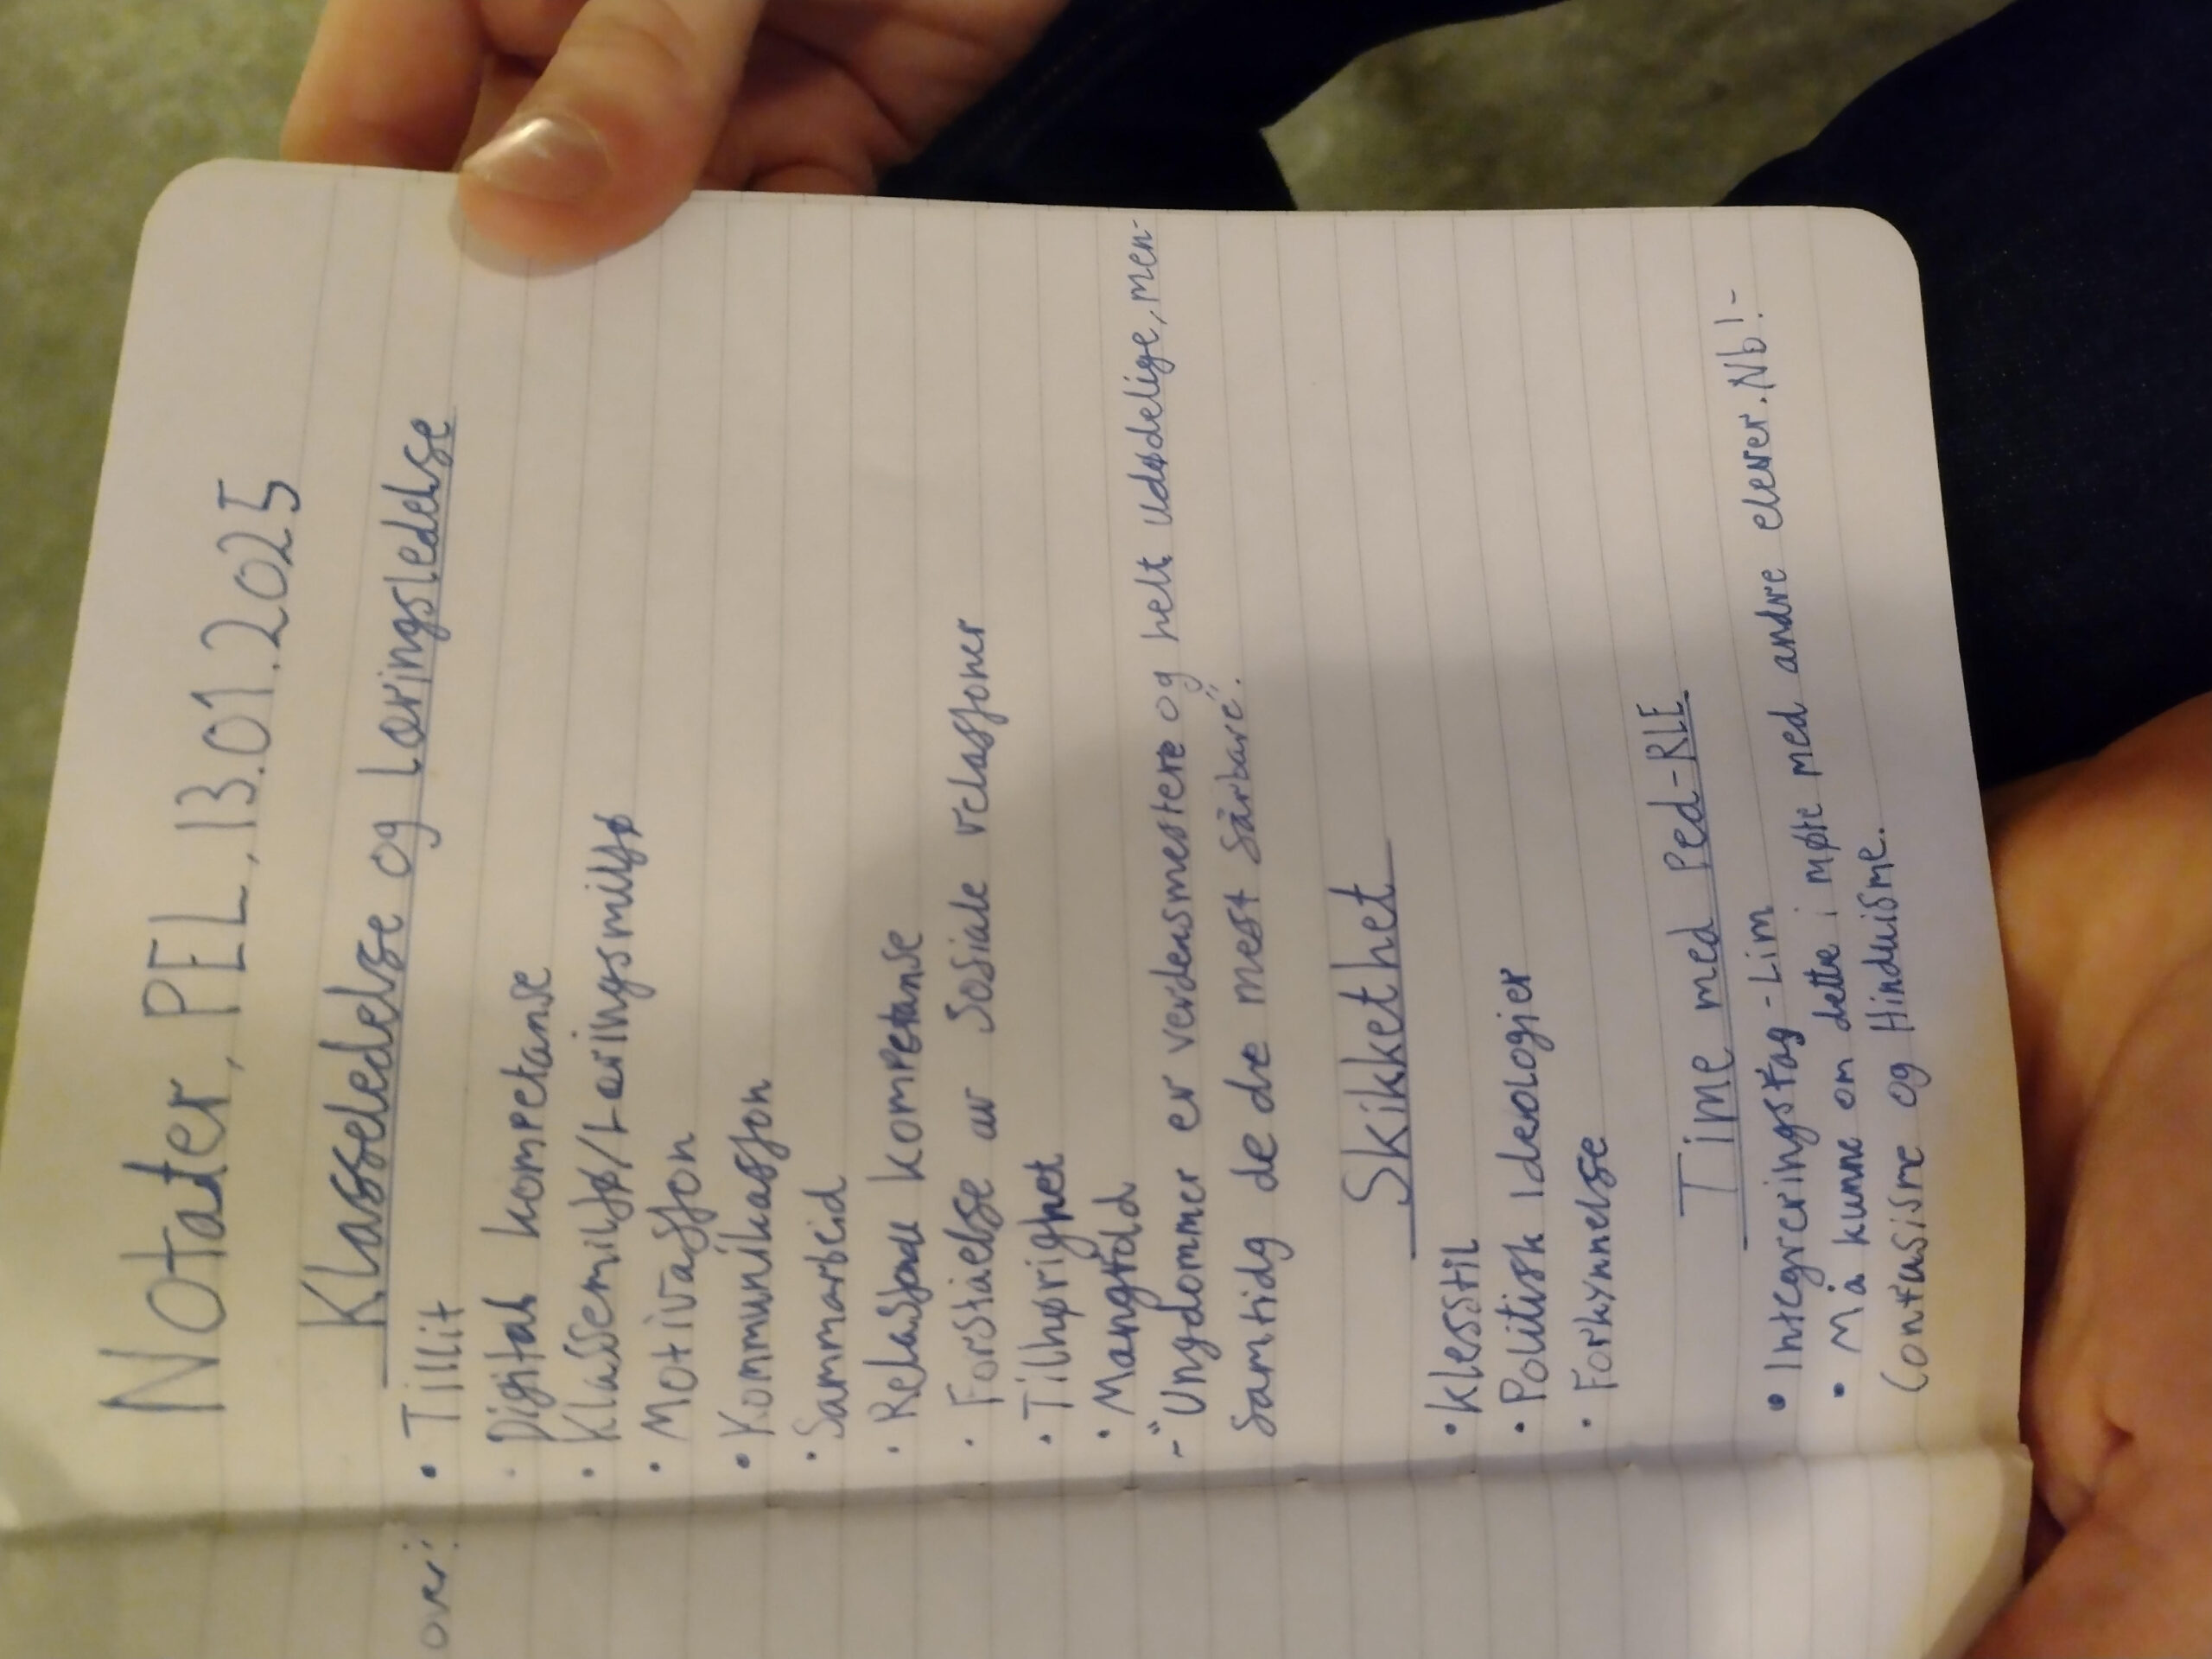 Notater, PEL, 13.01.2025
Klasseledelse og Læringsledelse
over:
• Tillit
• Digital kompetanse
• Klassemiljø/Læringsmiljø
• Motivasjon
• Kommunikasjon
• Sammarbeid
• Relasjonell kompetanse
• Forståelse av Sosiale relasjoner
• Tilhørighet
• Mangfold
- "Ungdommer er verdensmestere og helt udødelige, men-
Samtidg de de mest sårbare".
Skikkethet
• Klesstil
• Politisk Ideologier
• Forkynnelse
Time med Ped-RLE
• Integreringsfag - Lim
• Må kunne om dette i møte med andre elever. Nb!-
Confusisme og Hinduisme.